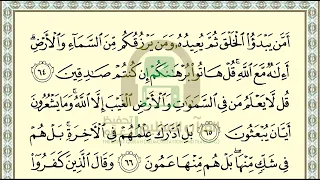 أَمَّن يَبْدَؤُا۟ ٱلْخَلْقَ ثُمَّ يُعِيدُهُۥ وَمَن يَرْزُقُكُم مِّنَ ٱلسَّمَآءِ وَٱلْأَرْضِ
أَءِلَٰهٌ مَّعَ ٱللَّهِ قُلْ هَاتُوا۟ بُرْهَٰنَكُمْ إِن كُنتُمْ صَٰدِقِينَ ٦٤
قُل لَّا يَعْلَمُ مَن فِى ٱلسَّمَٰوَٰتِ وَٱلْأَرْضِ ٱلْغَيْبَ إِلَّا ٱللَّهُ وَمَا يَشْعُرُونَ
أَيَّانَ يُبْعَثُونَ ٦٥ بَلِ ٱدَّٰرَكَ عِلْمُهُمْ فِى ٱلْءَاخِرَةِ بَلْ هُمْ
فِى شَكٍّ مِّنْهَا بَلْ هُم مِّنْهَا عَمُونَ ٦٦ وَقَالَ ٱلَّذِينَ كَفَرُوٓا۟